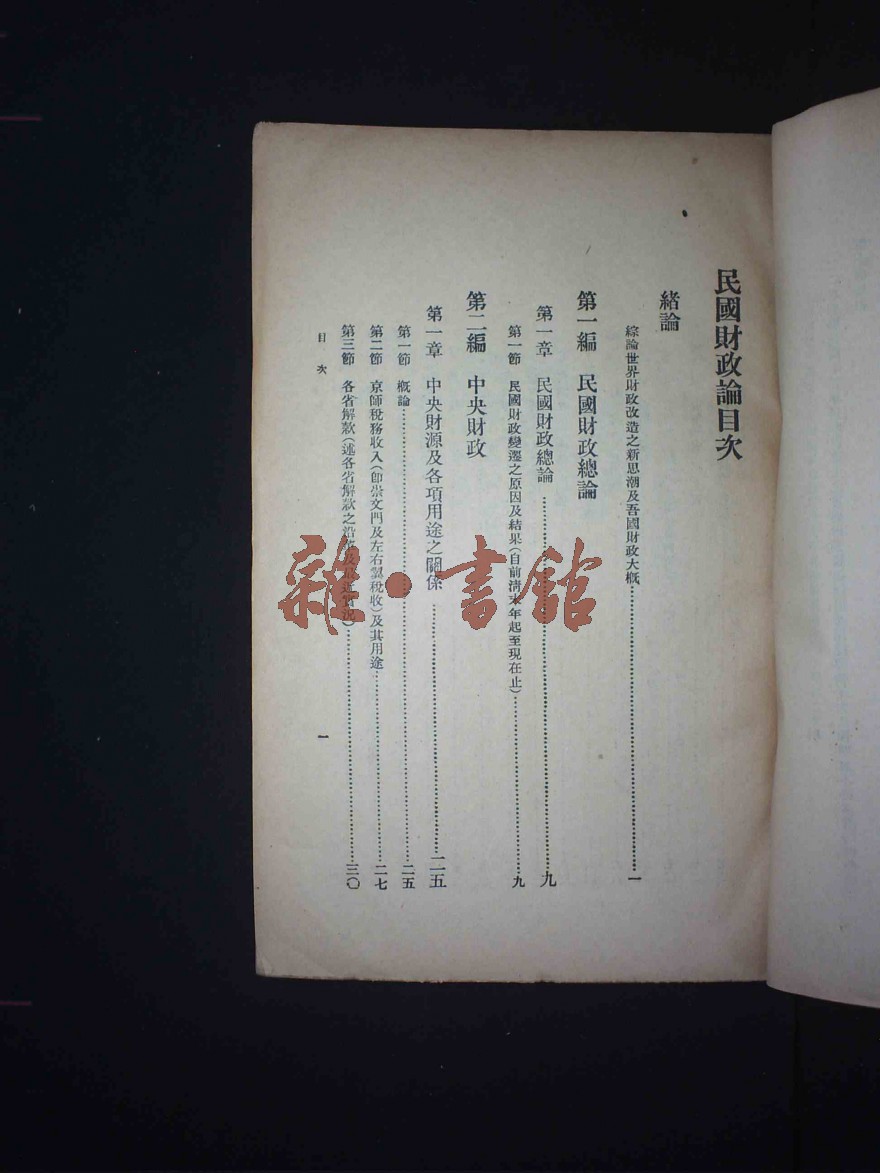 民國財政論目次
緒論
綜論世界財政改造之新思潮及吾國財政大概……一
第一編　民國財政總論
第一章　民國財政總論……九
第一節　民國財政變遷之原因及結果(自前淸末年起至現在止)……九
第二編　中央財政
第一章　中央財源及各項用途之關係……二五
第一節　概論……二五
第二節　京師稅務收入(卽崇文門及左右翼稅收)及其用途……二七
第三節　各省解款(述各省解款之沿革及最近實況)……三〇
目次
一
雜·書館